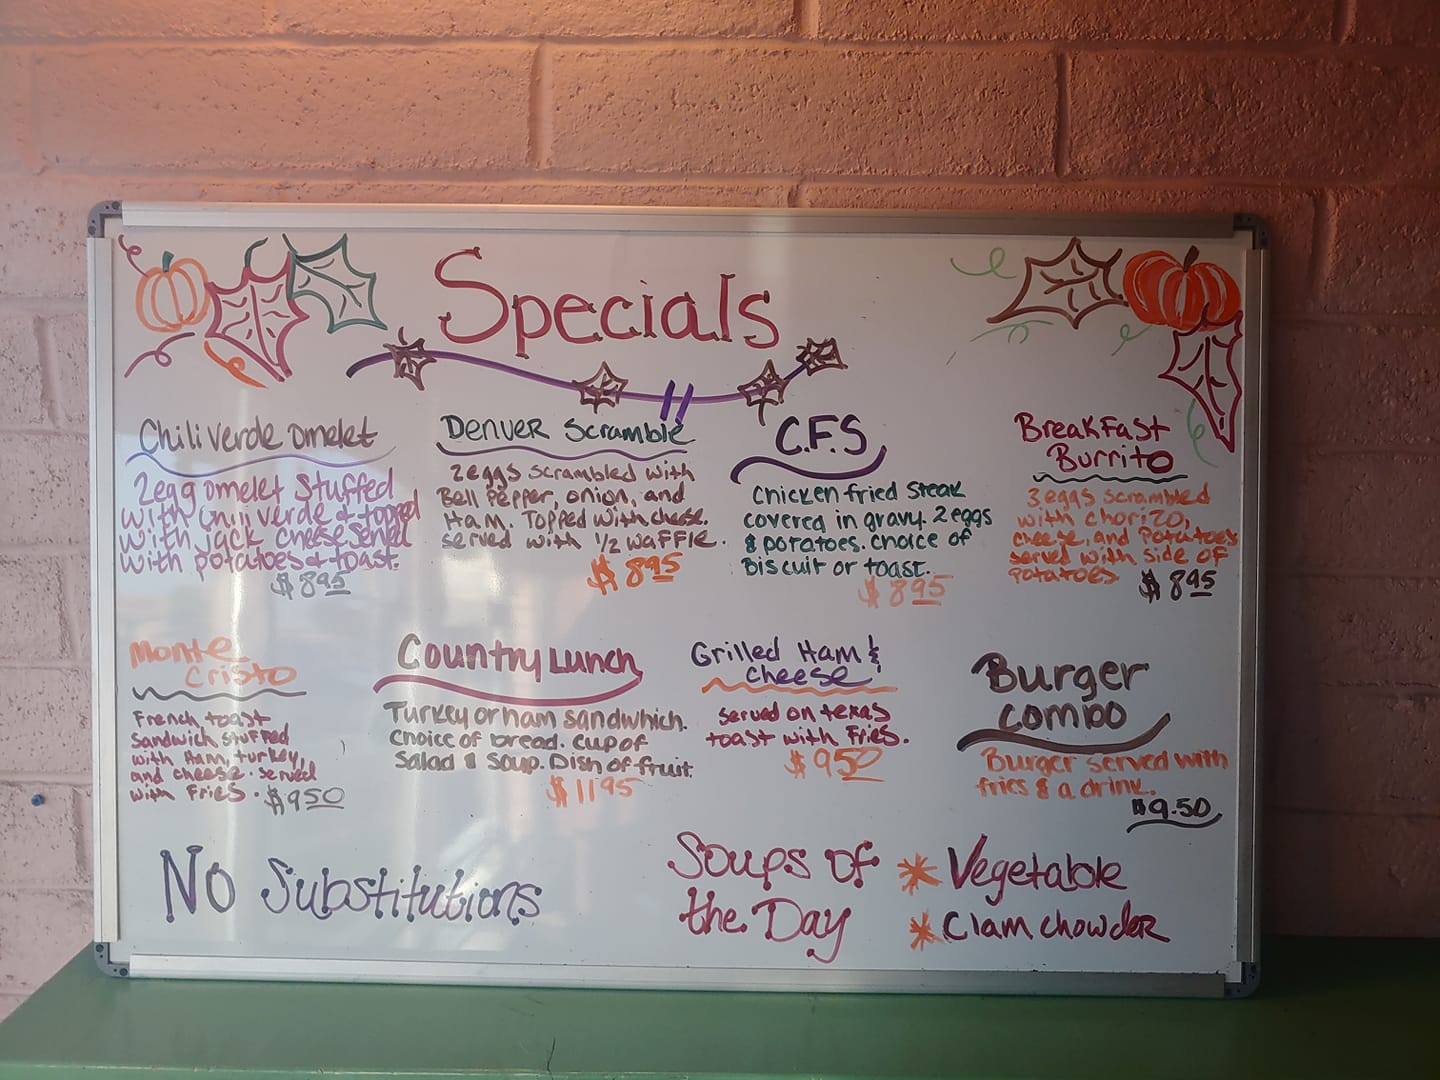 Specials
Chili Verde Omelet
2 egg omelet stuffed
with chili verde & topped
with jack cheese served
with potatoes & toast.
$8.95
Denver Scramble
2 eggs scrambled with
Bell Pepper, onion, and
Ham. Topped with cheese.
served with 1/2 waffle.
$8.95
C.F.S
Chicken fried steak
covered in gravy. 2 eggs
& potatoes. Choice of
Biscuit or toast.
$8.95
Breakfast
Burrito
3 eggs scrambled
with chorizo,
cheese, and potatoes
served with side of
potatoes
$8.95
Monte
Cristo
French toast
Sandwich stuffed
with Ham, turkey,
and cheese. served
with Fries. $9.50
Country Lunch
Turkey or ham sandwhich.
Choice of bread. Cup of
Salad & Soup. Dish of fruit.
$11.95
Grilled Ham &
Cheese
served on texas
toast with Fries.
$9.50
Burger
combo
Burger served with
fries & a drink.
$9.50
No Substitutions
Soups of
the Day
* Vegetable
* Clam chowder